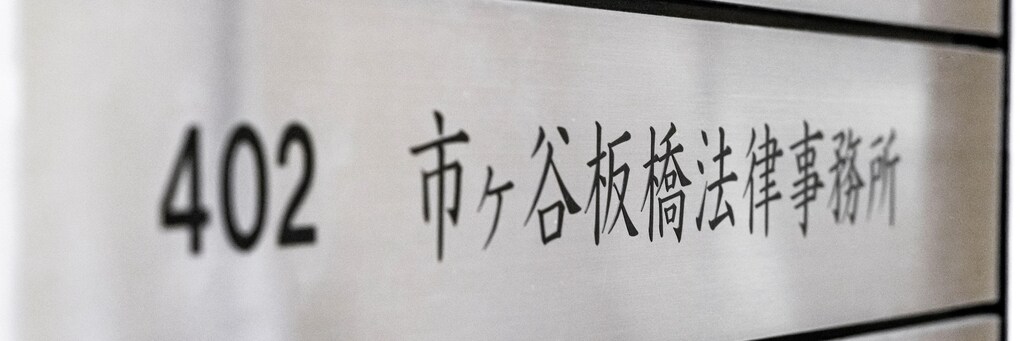 402 市ヶ谷板橋法律事務所